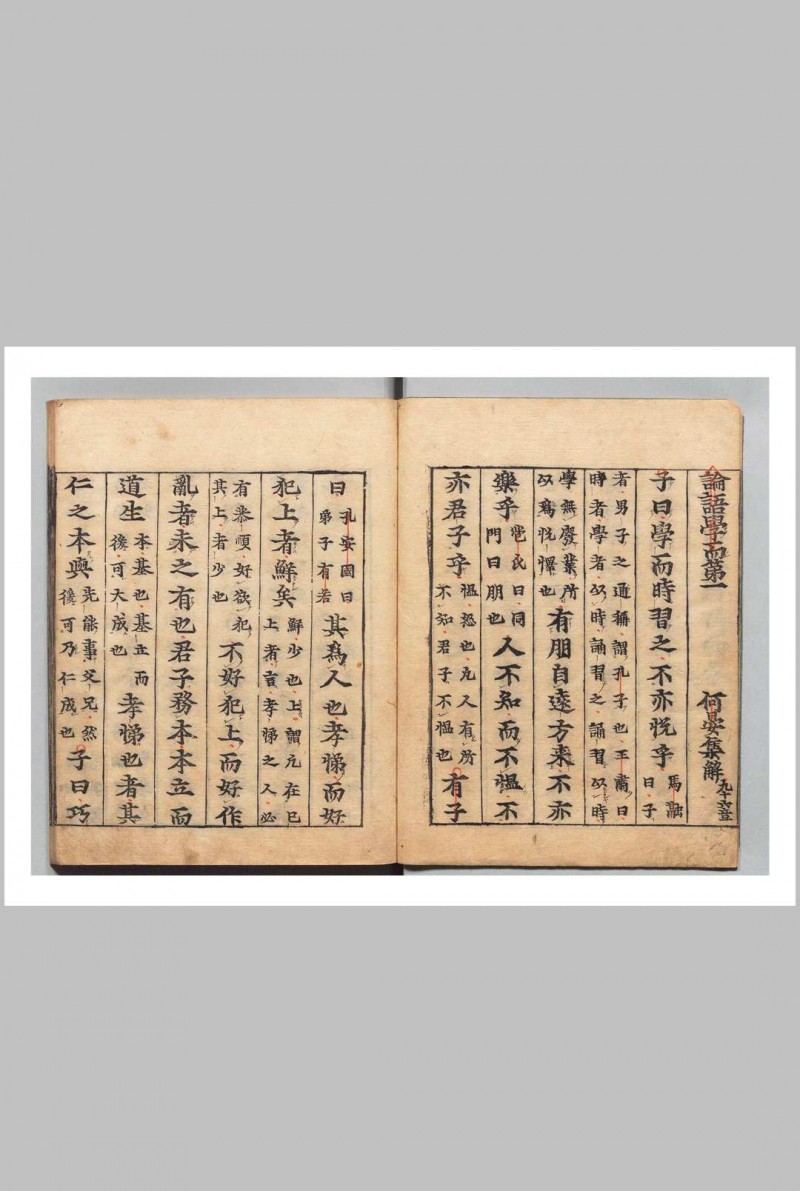 論語學而第一 何晏集解 凢十六章
子曰學而時習之不亦悅乎馬融曰子
者男子之通稱謂孔子也王肅曰時者學者以時誦習之誦習以時
學無廢業所以爲悅懌也有朋自遠方来不亦
樂乎苞氏曰同門曰朋也人不知而不愠不
亦君子乎愠怒也凢人有所不知君子不愠也有子
曰孔安國曰弟子有若其爲人也孝悌而好
犯上者鮮矣鮮少也上謂凢在己上者言孝悌之人必
有恭順好欲犯其上者少也不好犯上而好作
亂者未之有也君子務本本立而
道生本基也基立而後可大成也孝悌也者其
仁之本與先能事父兄然後可乃仁成也子曰巧